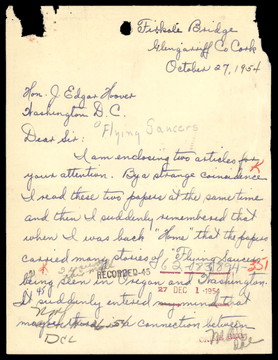 Fiskale Bridge
Glengarriff Co Cork
October 27, 1954
Hon. J. Edgar Hoover
Washington D.C.
"Flying Saucers
Dear Sir:
I am enclosing two articles for
your attention. By a strange coincidence
I read these two papers at the same time
and then I suddenly remembered that
when I was back "Home" that the papers
carried many stories of "Flying Saucers"
62-83894-351
RECORDED-45
being seen in Oregon and Washington.
27 DEC 1 1954
It suddenly entered my mind that
connection between